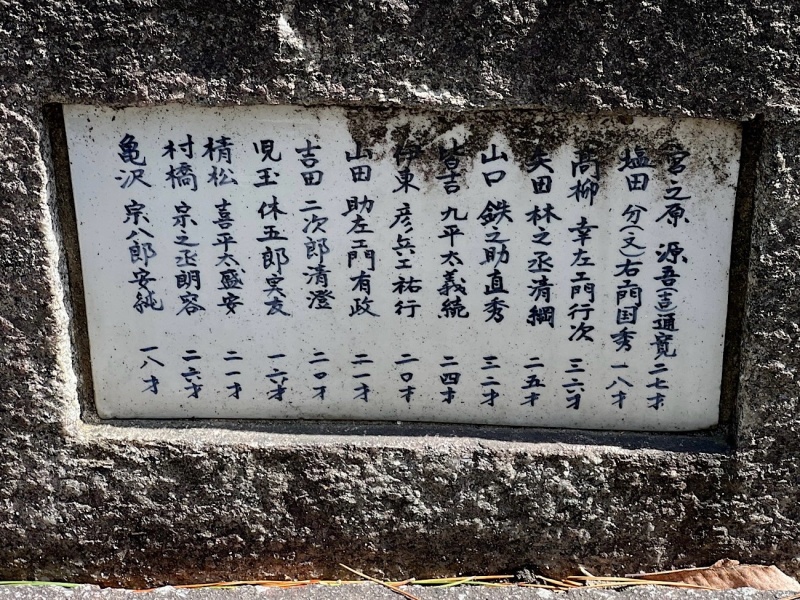 宮之原 源吾(吉)通寛 二七才
塩田 分(又)右エ門国秀 一八才
髙柳 幸左エ門行次 三六才
矢田 林之丞清綱 二五才
山口 鉄之助直秀 三二才
皆吉 九平太義続 二四才
伊東 彦兵エ祐行 二〇才
山田 助左エ門有政 二一才
吉田 二次郎清澄 二〇才
児玉 休五郎実友 一六才
楕松 喜平太盛安 二一才
村橋 宗之丞朗容 二六才
亀沢 宗八郎安純 一八才